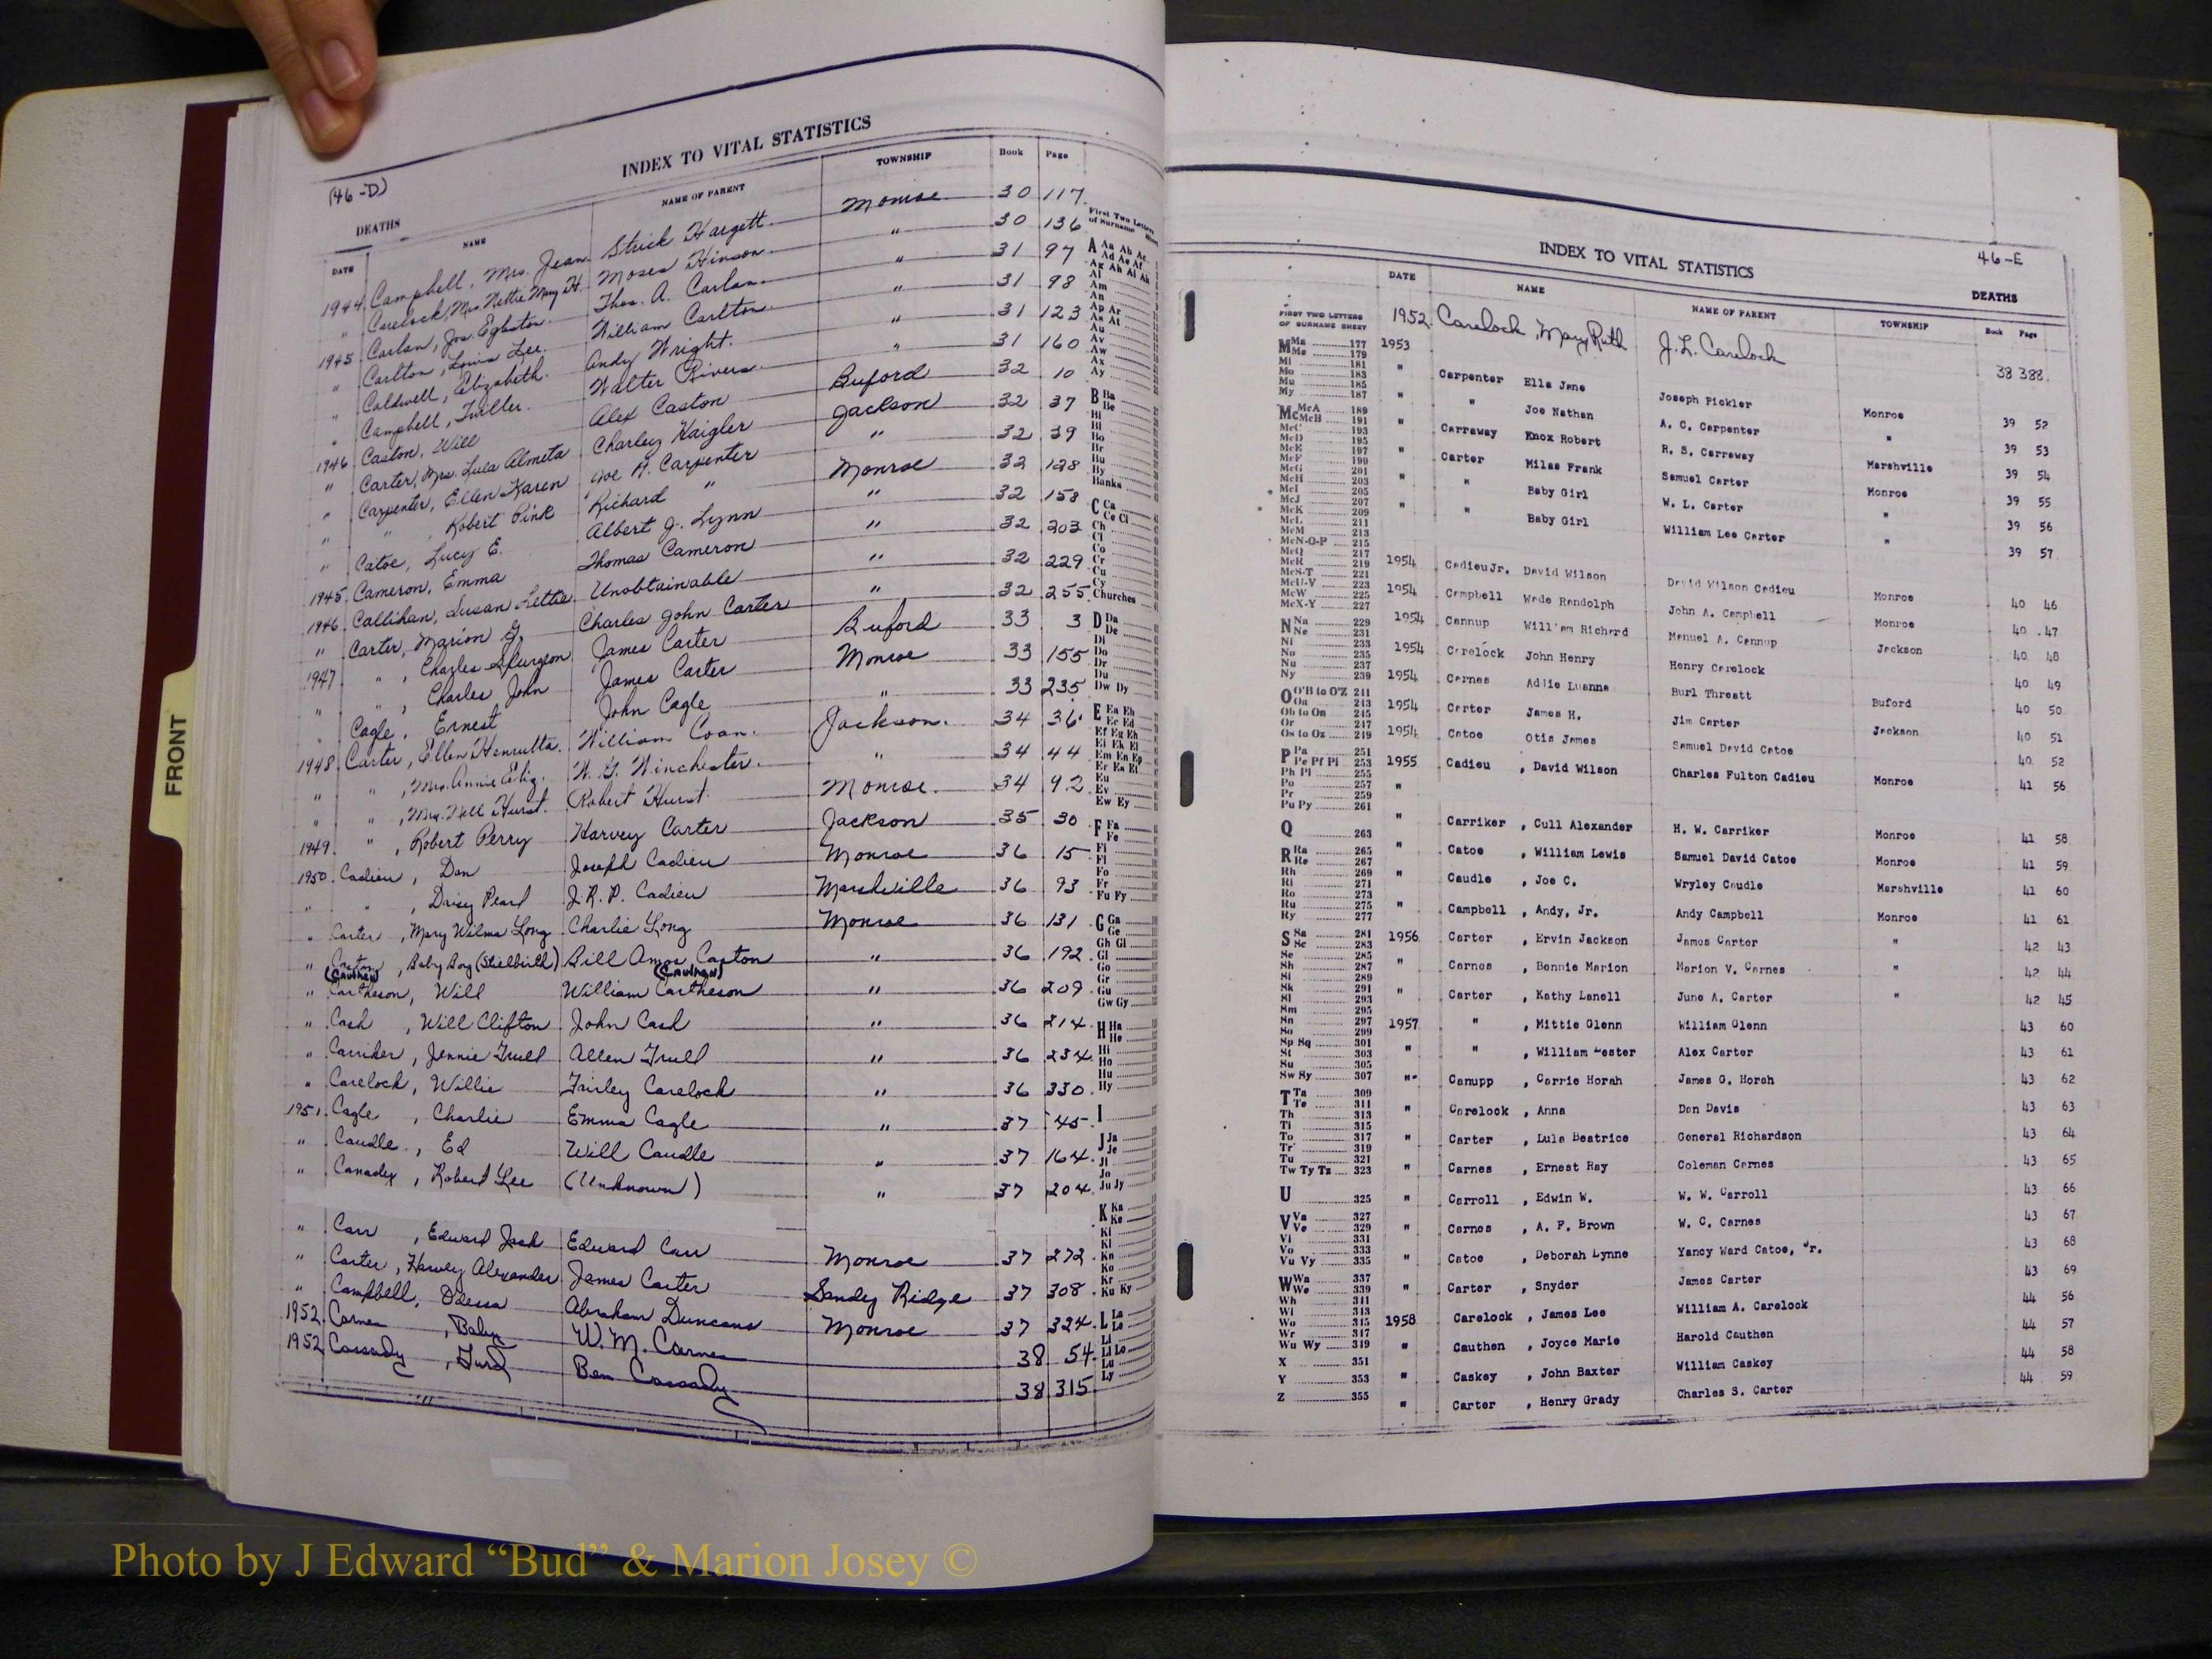 (46-D)
INDEX TO VITAL STATISTICS
DEATHS
DATE NAME NAME OF PARENT TOWNSHIP Book Page
1944 Campbell, Mrs. Jean Strick Hargett Monroe 30 117
" Carelock, Mrs. Nettie Mary H. Moses Hinson " 30 136
1945 Carlan, Jos. Egbston Thos. A. Carlan " 31 97
" Carlton, Louis Lee William Carlton " 31 98
" Caldwell, Elizabeth Andy Wright " 31 123
" Campbell, Walter Rivers " 31 160
1946 Caston, Will Alex Caston Buford 32 10
" Carter, Mrs. Lula Almeta Charley Haigler Jackson 32 37
" Carpenter, Ellen Karen Joe A. Carpenter " 32 39
" " Robert Pink Richard " Monroe 32 128
" Catoe, Lucy E. Albert J. Lynn " 32 158
1945 Cameron, Emma Thomas Cameron " 32 203
1946 Callihan, Susan Lettie Unobtainable " 32 229
" Carter, Marion G. Charles John Carter " 32 255
1947 " , Charles Spurgeon James Carter Buford 33 3
" " , Charles John James Carter Monroe 33 155
" Cagle, Ernest John Cagle " 33 235
1948 Carter, Ellen Henrietta William Coan Jackson 34 36
" " , Mrs. Annie Eliz. W. G. Winchester " 34 44
" " , Mrs. Nell Hurst Robert Hurst Monroe 34 92
1949 " , Robert Perry Harvey Carter Jackson 35 30
1950 Cadieu, Dan Joseph Cadieu Monroe 36 15
" " , Daisy Pearl J. R. P. Cadieu Marshville 36 93
" Carter, Mary Wilma Long Charlie Long Monroe 36 131
" Caston, Baby Boy (Stillbirth) Bill Amos Caston " 36 192
(Cauthen) (Cauthen)
" Cartheson, Will William Cartheson " 36 209
" Cash, Will Clifton John Cash " 36 214
" Carriker, Jennie Trull Allen Trull " 36 234
" Carelock, Willie Fairley Carelock " 36 330
1951 Cagle, Charlie Emma Cagle " 37 45
" Caudle, Ed Will Caudle " 37 164
" Canadey, Robert Lee (Unknown) " 37 204
" Carr, Edward Jack Edward Carr Monroe 37 272
" Carter, Harvey Alexander James Carter Sandy Ridge 37 308
" Campbell, Odessa Abraham Duncans Monroe 37 324
1952 Carnes, Baby W. M. Carnes 38 54
1952 Cassady, Ben Cassady 38 315
First Two Letters
of Surname
A Aa Ab Ac
Ad Ae Af
Ag Ah Ai Ak
Al
Am
An
Ap Ar
As At
Au
Av
Aw
Ax
Ay
B Ba
Be
Bi
Bl
Bo
Br
Bu
By
Banks
C Ca
Ce Ci
Ch
Cl
Co
Cr
Cu
Cy
Churches
D Da
De
Di
Do
Dr
Du
Dw Dy
E Ea Eb
Ec Ed
Ef Eg Eh
Ei Ek El
Em En Ep
Er Es Et
Eu
Ev
Ew Ey
F Fa
Fe
Fi
Fl
Fo
Fr
Fu Fy
G Ga
Ge
Gh Gi
Gl
Go
Gr
Gu
Gw Gy
H Ha
He
Hi
Ho
Hu
Hy
I
J Ja
Je
Ji
Jo
Ju Jy
K Ka
Ke
Ki
Kl
Kn
Ko
Kr
Ku Ky
L La
Le
Li
Ll Lo
Lu
Ly
FRONT
46-E
INDEX TO VITAL STATISTICS
DEATHS
DATE NAME NAME OF PARENT TOWNSHIP Book Page
1952 Carelock, Mary Ruth J. L. Carelock 38 388
1953
" Carpenter Ella Jane Joseph Pickler Monroe 39 52
" " Joe Nathan A. C. Carpenter " 39 53
" Carraway Knox Robert R. S. Carraway Marshville 39 54
" Carter Milas Frank Samuel Carter Monroe 39 55
" " Baby Girl W. L. Carter " 39 56
" " Baby Girl William Lee Carter " 39 57
1954 Cadieu Jr. David Wilson David Wilson Cadieu Monroe 40 46
1954 Campbell Wade Randolph John A. Campbell Monroe 40 47
1954 Cannup William Richard Manuel A. Cannup Jackson 40 48
1954 Carelock John Henry Henry Carelock 40 49
1954 Carnes Addie Luanna Burl Threatt Buford 40 50
1954 Carter James H. Jim Carter Jackson 40 51
1954 Catoe Otis James Samuel David Catoe 40 52
1955 Cadieu , David Wilson Charles Fulton Cadieu Monroe 41 56
" Carriker , Cull Alexander H. W. Carriker Monroe 41 58
" Catoe , William Lewis Samuel David Catoe Monroe 41 59
" Caudle , Joe C. Wryley Caudle Marshville 41 60
" Campbell , Andy, Jr. Andy Campbell Monroe 41 61
1956 Carter , Ervin Jackson James Carter " 42 43
" Carnes , Bennie Marion Marion V. Carnes " 42 44
" Carter , Kathy Lanell June A. Carter " 42 45
1957 " , Mittie Glenn William Glenn 43 60
" " , William Lester Alex Carter 43 61
" Canupp , Carrie Horah James G. Horah 43 62
" Carelock , Anna Dan Davis 43 63
" Carter , Lula Beatrice General Richardson 43 64
" Carnes , Ernest Ray Coleman Carnes 43 65
" Carroll , Edwin W. W. W. Carroll 43 66
" Carnes , A. F. Brown W. C. Carnes 43 67
" Catoe , Deborah Lynne Yancy Ward Catoe, Jr. 43 68
" Carter , Snyder James Carter 43 69
1958 Carelock , James Lee William A. Carelock 44 56
" Cauthen , Joyce Marie Harold Cauthen 44 57
" Caskey , John Baxter William Caskey 44 58
" Carter , Henry Grady Charles S. Carter 44 59
FIRST TWO LETTERS
OF SURNAME SHEET
M Ma 177
Me 179
Mi 181
Mo 183
Mu 185
My 187
Mc McA 189
McB 191
McC 193
McD 195
McE 197
McF 199
McG 201
McH 203
McI 205
McJ 207
McK 209
McL 211
McM 213
McN-O-P 215
McQ 217
McR 219
McS-T 221
McU-V 223
McW 225
McX-Y 227
N Na 229
Ne 231
Ni 233
No 235
Nu 237
Ny 239
O O'B to O'Z 241
Oa 243
Ob to On 245
Or 247
Os to Oz 249
P Pa 251
Pe Pf Pl 253
Ph Pi 255
Po 257
Pr 259
Pu Py 261
Q 263
R Ra 265
Re 267
Rh 269
Ri 271
Ro 273
Ru 275
Ry 277
S Sa 281
Sc 283
Se 285
Sh 287
Si 289
Sk 291
Sl 293
Sm 295
Sn 297
So 299
Sp Sq 301
St 303
Su 305
Sw Sy 307
T Ta 309
Te 311
Th 313
Ti 315
To 317
Tr 319
Tu 321
Tw Ty Tz 323
U 325
V Va 327
Ve 329
Vi 331
Vo 333
Vu Vy 335
W Wa 337
We 339
Wh 341
Wi 343
Wo 345
Wr 347
Wu Wy 349
X 351
Y 353
Z 355
Photo by J Edward “Bud” & Marion Josey ©